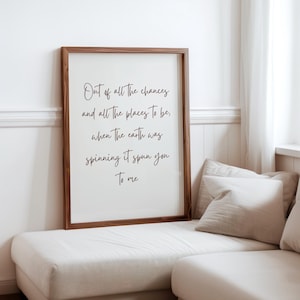 Out of all the chances
and all the places to be,
when the earth was
spinning it spun you
to me.